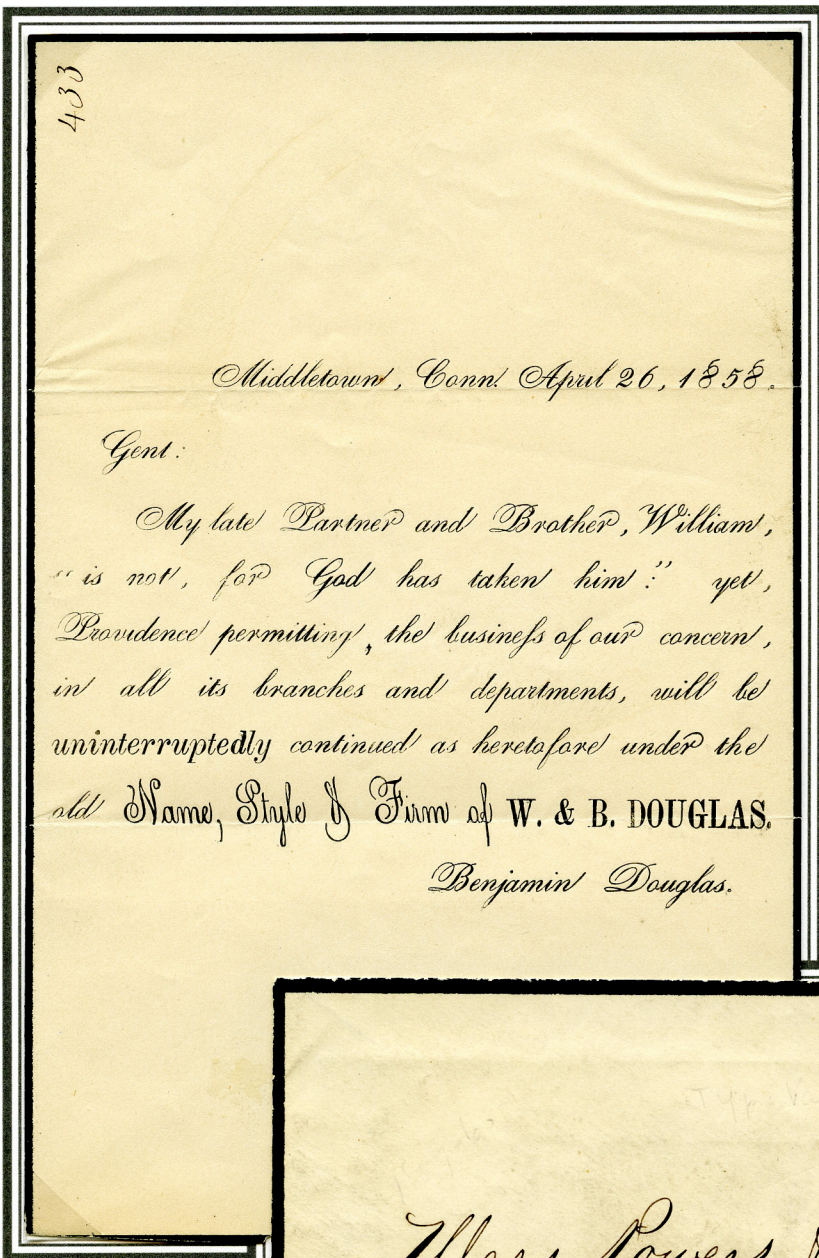 433
Middletown, Conn. April 26, 1858.
Gent:
My late Partner and Brother, William,
"is not, for God has taken him:" yet,
Providence permitting, the buſineſs of our concern,
in all its branches and departments, will be
uninterruptedly continued as heretofore under the
old Name, Style & Firm of W. & B. DOUGLAS.
Benjamin Douglas.
Powers